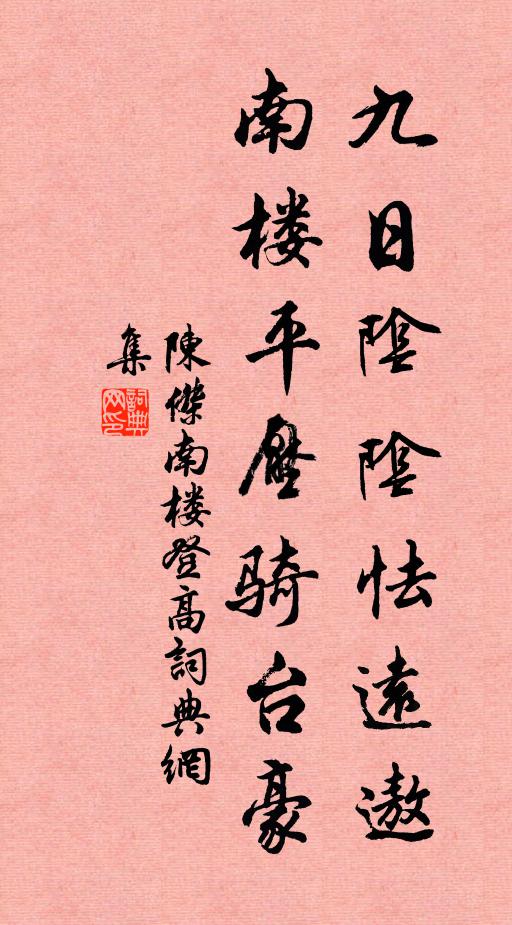 九日陰陰怯遠遨
南楼平壓騎台豪
陳傑南楼登高詞典網
集
詞典網印